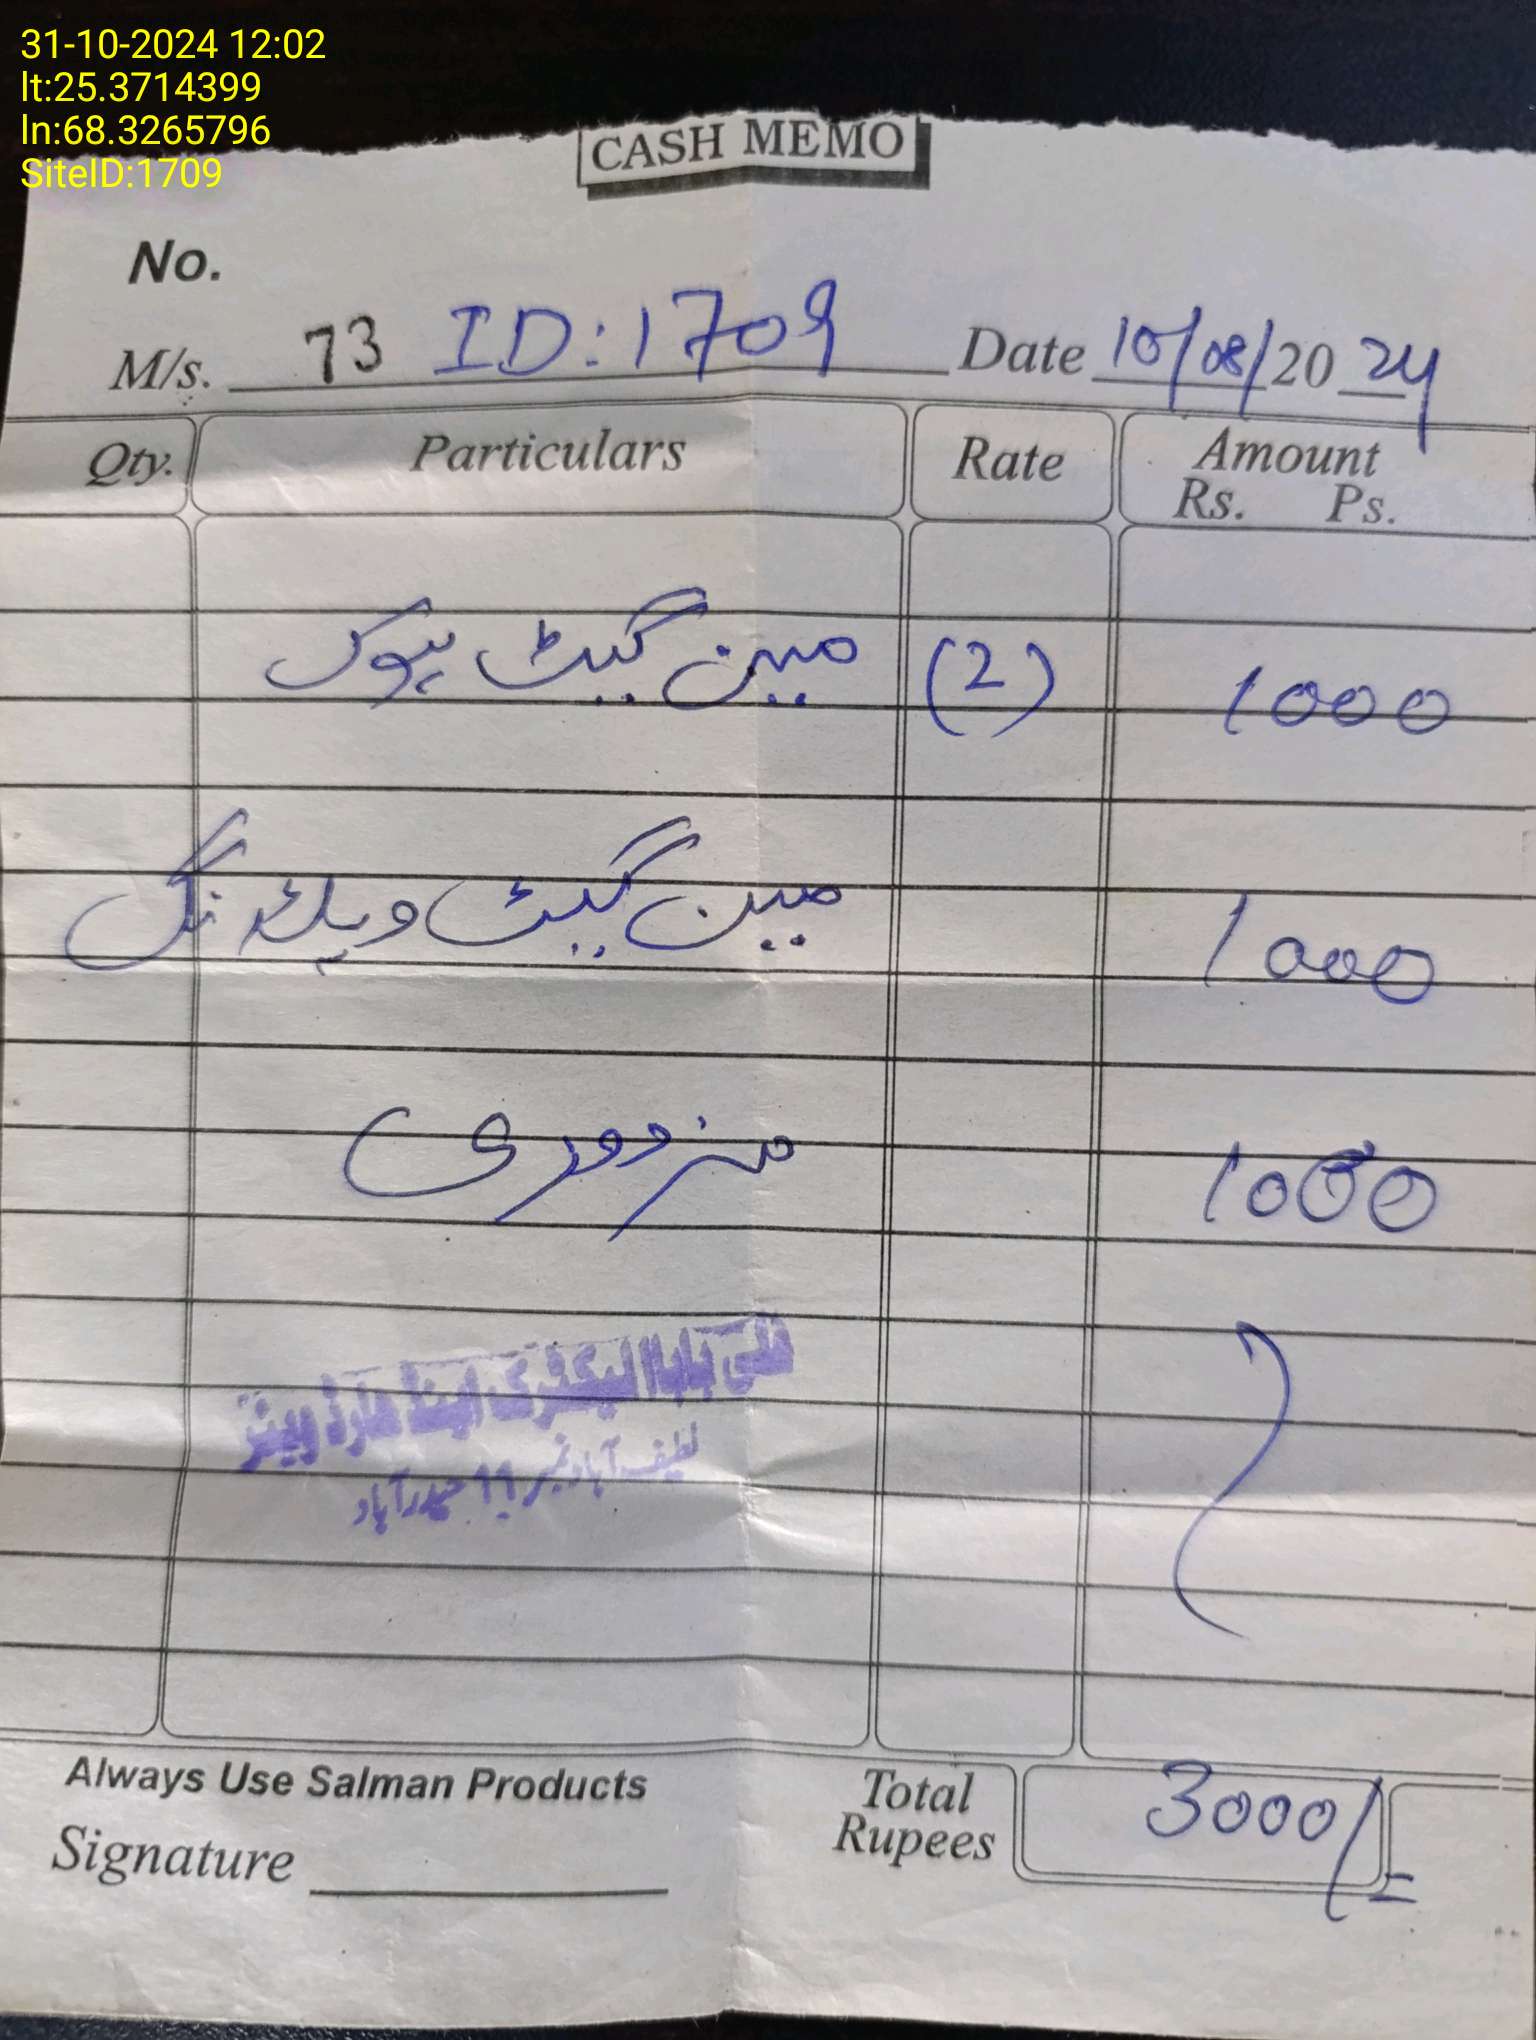 31-10-2024 12:02
lt:25.3714399
ln:68.3265796
SiteID:1709
CASH MEMO
No.
M/s. 73 ID:1709 Date 10/08/2024
Qty. Particulars Rate Amount
Rs. Ps.
مین گیٹ (2) 1000
مین گیٹ ویلڈنگ 1000
مزدوری 1000
بابا الیکٹرک اینڈ ہارڈ ویئر
لطیف آباد نمبر 11 حیدرآباد
Always Use Salman Products
Total
Rupees 3000/=
Signature